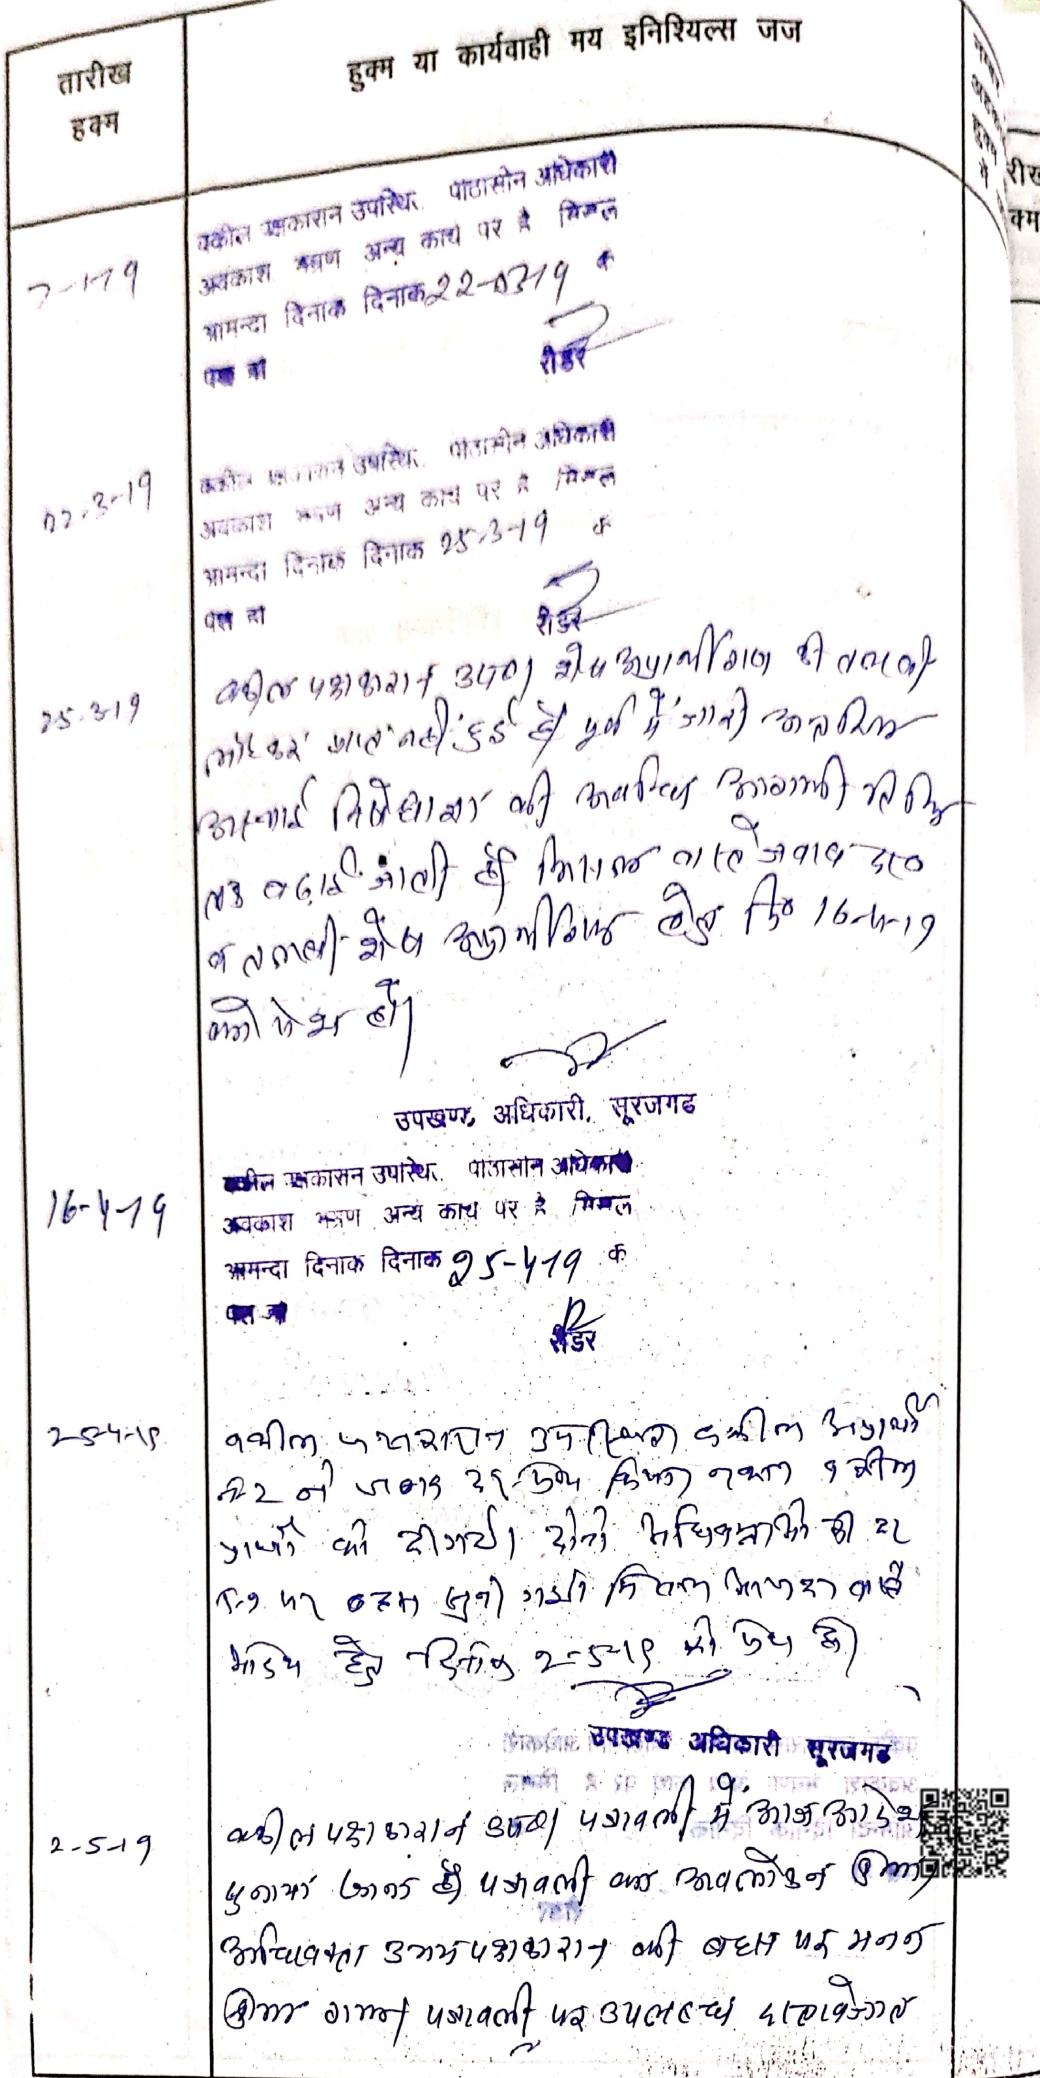 तारीख
हुक्म
हुक्म या कार्यवाही मय इनिशियल्स जज
रीख
क्म
7-1-19
वकील पक्षकारान उपस्थि. पीठासीन अधिकारी
अवकाश भ्रमण अन्य कार्य पर है मिसल
आमन्दा दिनांक दिनांक 22-03-19 क
पेश हो
रीडर
22-3-19
वकील पक्षकारान उपस्थि. पीठासीन अधिकारी
अवकाश भ्रमण अन्य कार्य पर है मिसल
आमन्दा दिनांक दिनांक 25-3-19 क
पेश हो
रीडर
25-3-19
वकील पक्षकारान उप0। शेष अप्रार्थीगण की तलबी
होकर प्राप्त नहीं हुई है। पूर्व में जारी अन्तरिम
अस्थाई निषेधाज्ञा की अवधि आगामी तारीख
तक बढ़ाई जाती है। मिसल वास्ते जवाब द0
व तलबी शेष अप्रार्थीगण हेतु दि0 16-4-19
को पेश हो।
उपखण्ड अधिकारी, सूरजगढ
16-4-19
वकील पक्षकारान उपस्थि. पीठासीन अधिकारी
अवकाश भ्रमण अन्य कार्य पर है मिसल
आमन्दा दिनांक दिनांक 25-4-19 क
पेश हो
रीडर
25-4-19
वकील पक्षकारान उपस्थित। वकील अप्रार्थी
नं. 2 ने जवाब पेश किया नकल वकील
प्रार्थी को दी गयी। दोनों अधिवक्ताओं की
पर बहस सुनी गयी मिसल वास्ते
आदेश हेतु दिनांक 2-5-19 को पेश हो।
उपखण्ड अधिकारी सूरजगढ
2-5-19
वकील पक्षकारान उप0। पत्रावली में आज आदेश
सुनाया जाता है। पत्रावली का अवलोकन किया
अधिवक्ता उभय पक्षकारान की बहस पर मनन
किया गया। पत्रावली पर उपलब्ध दस्तावेजात